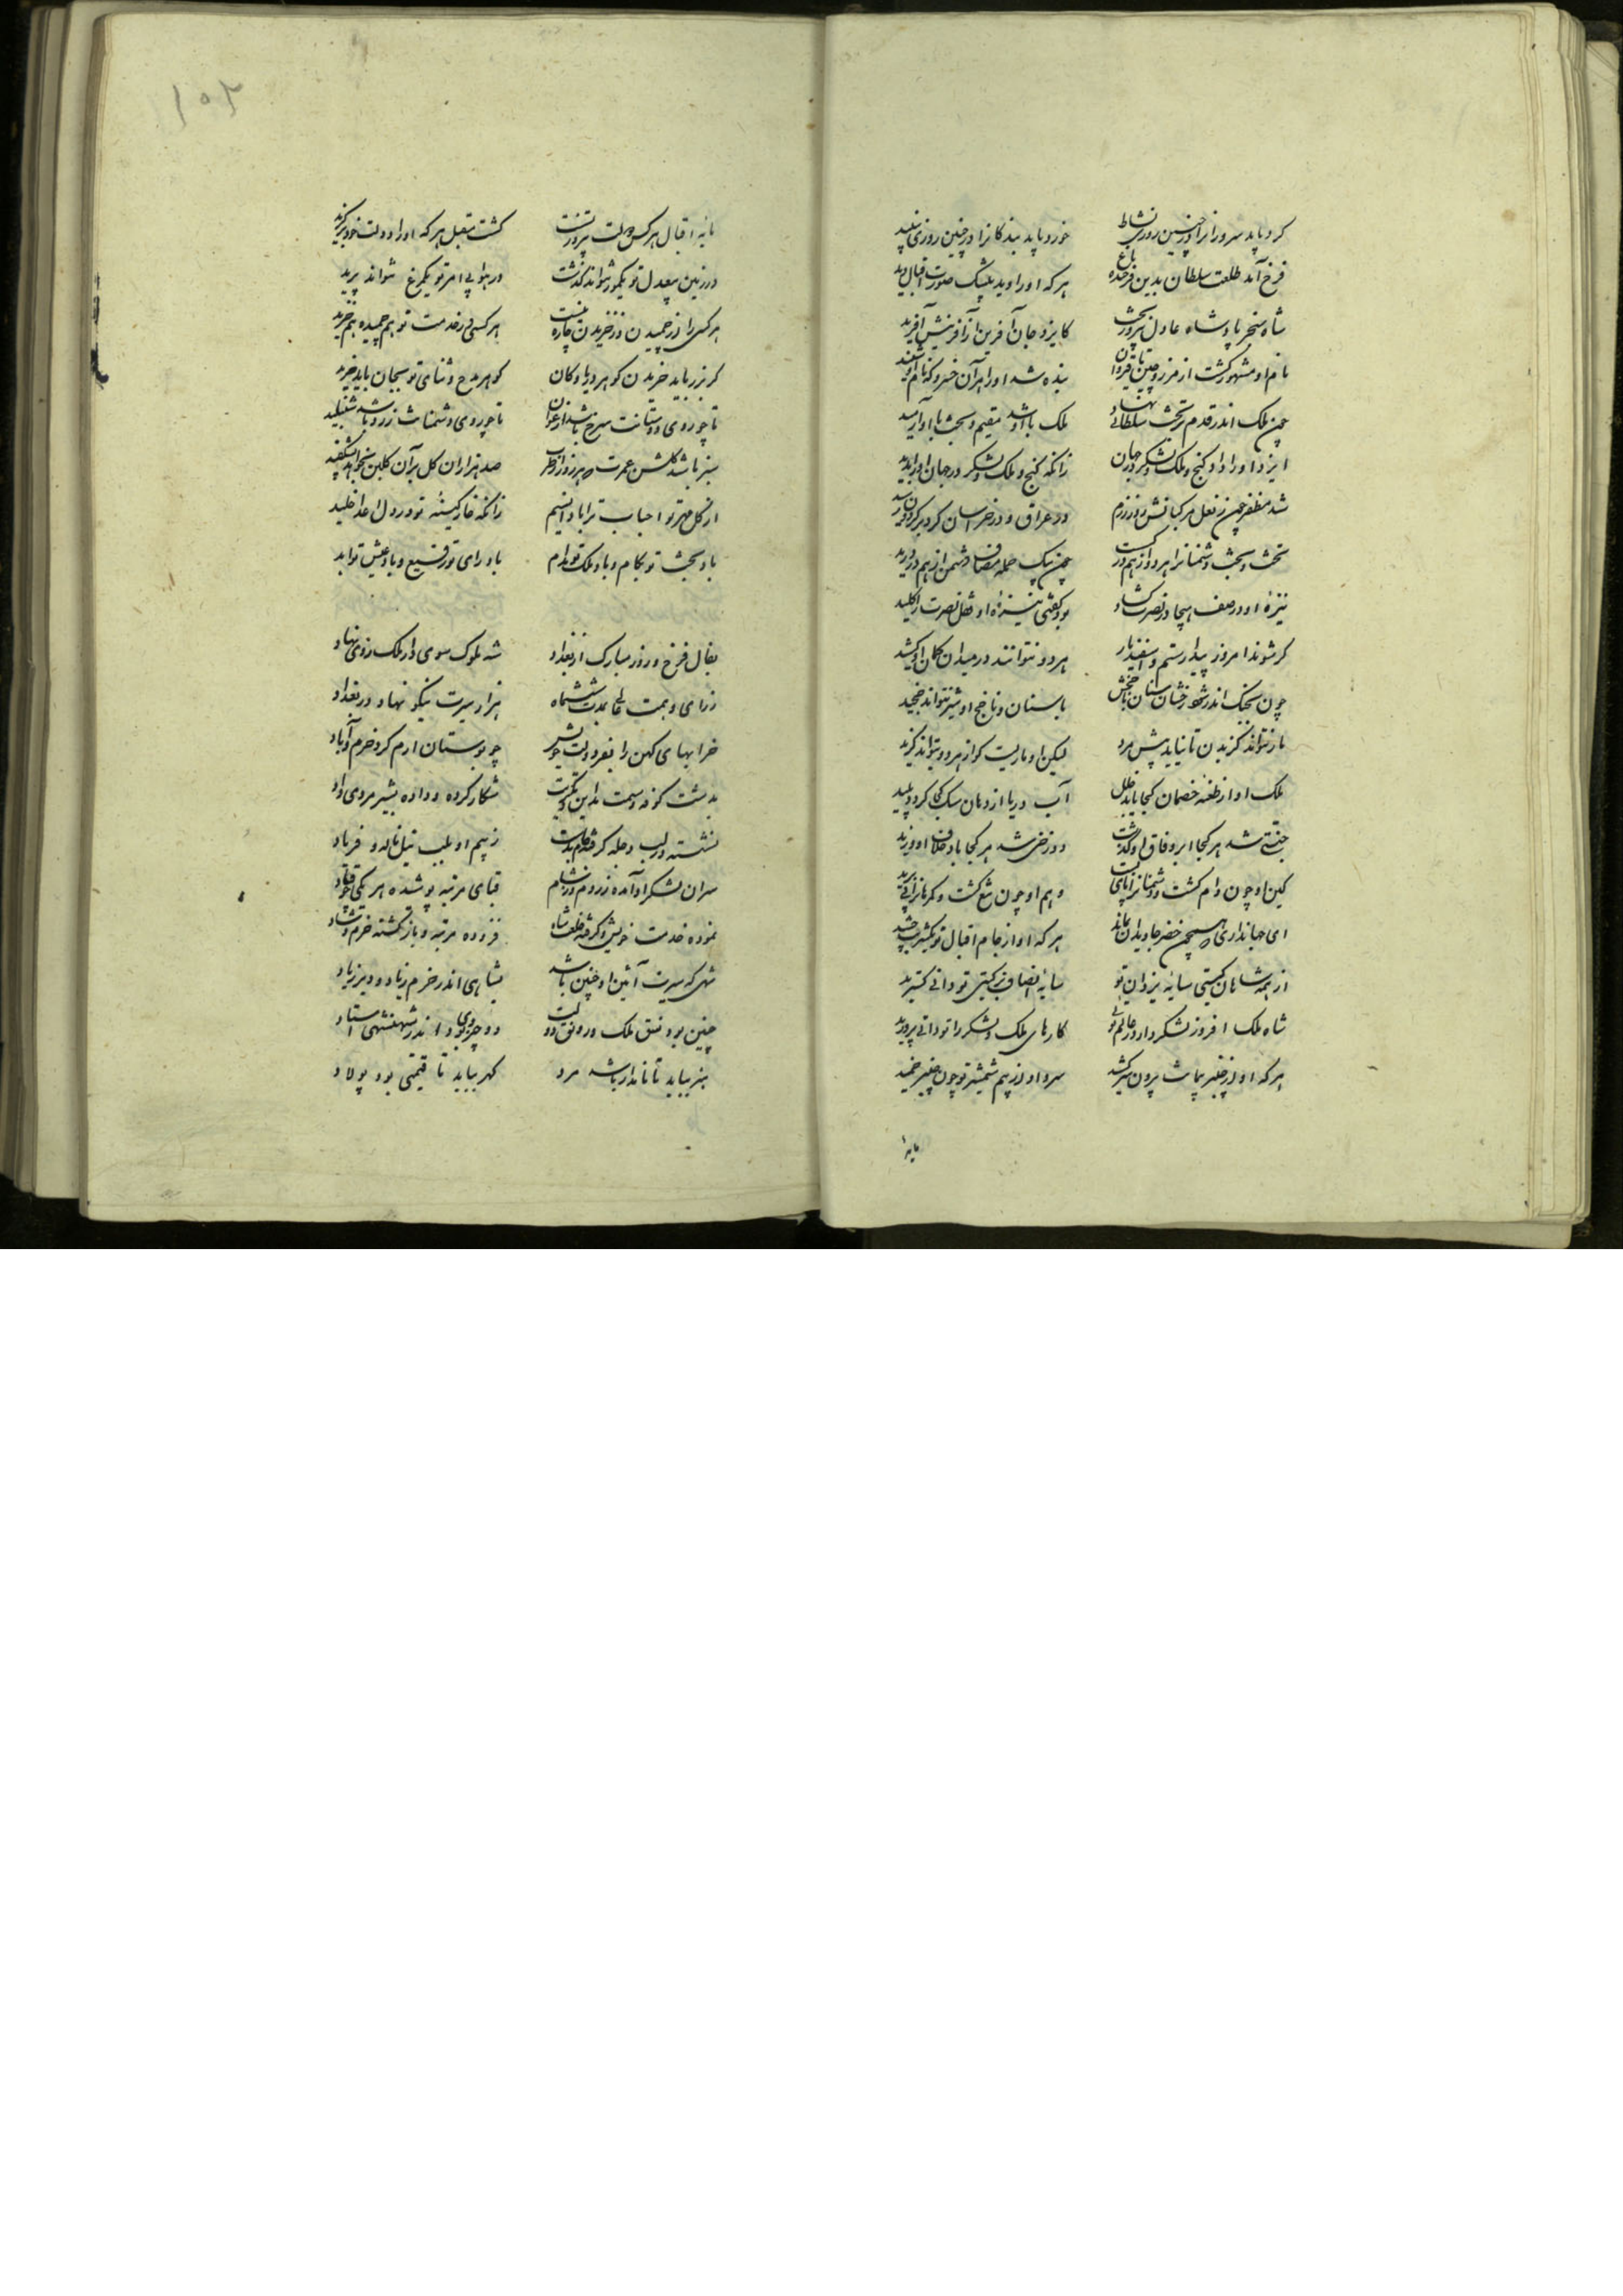 کرد باید سروزانرا در چنین روزی نشاط خورد باید بندکانرا در چنین روزی نبید
فرخ آمد طلعت سلطان بدین فرخنده باغ هر که او را دید بیشک صورت اقبال دید
شاه سنجر پادشاه عادل پیروزبخت کایزد جان آفرین از آفرینش آفرید
نام او مشهور کشت از مرز چین تا قیروان بنده شد او را هر آن خسرو که نام او شنید
چون ملک اندر قدم بر تخت سلطانی نهاد ملک با او شد مقیم و بخت با او آرمید
ایزد او را داد کنج و ملک و لشکر در جهان زانکه کنج و ملک و لشکر در جهان او را سزید
شد مظفر چون ز نعل مرکبانش روز رزم در عراق و در خراسان کرد بر کردون رسید
تخت و بخت دشمنانرا هر دو از هم در کسست چون بیک حمله مصاف دشمن از هم بر درید
نیزه او در صف هیجا در نصرت کشاد بود کفتی نیزه او قفل نصرت را کلید
کر شوند امروز بیدار رستم و اسفندیار هر دو نتوانند در میدان کمان او کشید
چون سنک اندر شود رخشان سنان با سنان و ناجخ او شیر نتواند چخید
مار نتواند کزیدن تا نیاید پیش مرد لیکن او ماریست کو از هر دو بتواند کزید
ملک او از طعنه خصمان کجا یابد خلل آب دریا از دهان سک کجا کردد پلید
جنتی شد هر کجا ابر وفاق او کذشت دوزخی شد هر کجا باد خلاف او وزید
کین او چون دام کشت و دشمنانرا پای بست وهم او چون تیغ کشت و کمرهانرا پی برید
ای جهانداری که همچون خضر جاویدان بماند هر که او از جام اقبال تو یک شربت چشید
از همه شاهان کیتی سایه یزدان توئی سایه انصاف بر کیتی تو دانی کسترید
شاه ملک افروز لشکردار در عالم توئی کارهای ملک و لشکر را تو دانی پرورید
هر که او از چنبر پیمانت بیرون سر کشد سرو او از بیم شمشیر تو چون چنبر خمید
مایه
مایه اقبال هر کس دولت پیروز تست کشت مقبل هر که او را دولت تو بر کزید
در زمین بیعدل تو یک مور نتواند کذشت در هوا بی امر تو یک مرغ نتواند پرید
هر کسی را از خمیدن وز خزیدن چاره نیست هر کسی در خدمت تو هم خمیده هم خزید
کر بزر باید خریدن کوهر دریا و کان کوهر مدح و ثنای تو بجان باید خرید
تا چو روی دوستانت سرخ باشد ارغوان تا چو روی دشمنانت زرد باشد شنبلید
سبز باشد کلشن عمرت صد هزاران کل بر آن کلبن بخواهد شکفید
از کل مهر تو احباب ترا بادا نسیم زانکه خار کینه تو در دل اعدا خلید
باد بخت تو بکام و باد ملک تو مدام باد رای تو رفیع و باد عیش تو لذید
بفال فرخ و روز مبارک از بغداد شه ملوک سوی دار ملک روی نهاد
ز رای و همت عالی بمدت شش ماه هزار سیرت نیکو نهاد در بغداد
خرابهای کهن را بفر دولت خویش چو بوستان ارم کرد خرم و آباد
بدشت کوفه و سمت مداین و تکریت شکار کرده و داده بشیر مردی داد
نشسته بر لب دجله کرفته جام بدست ز بیم او بلب نیل ناله و فریاد
سران لشکر او آمده ز روم و ز شام قبای مرتبه پوشیده هر یکی چو قباد
نموده خدمت خویش و کرفته خلعت شاه فزوده مرتبه و باز کشته خرم و شاد
شهی که سیرت و آئین او چنین باشد بشاهی اندر خرم زیاد و دیر زیاد
چنین بود نسق ملک و رونق دولت دو چیز بود اندر شهنشهی استاد
هنر بباید تا نامدار باشد مرد کهر بباید تا قیمتی بود پولاد